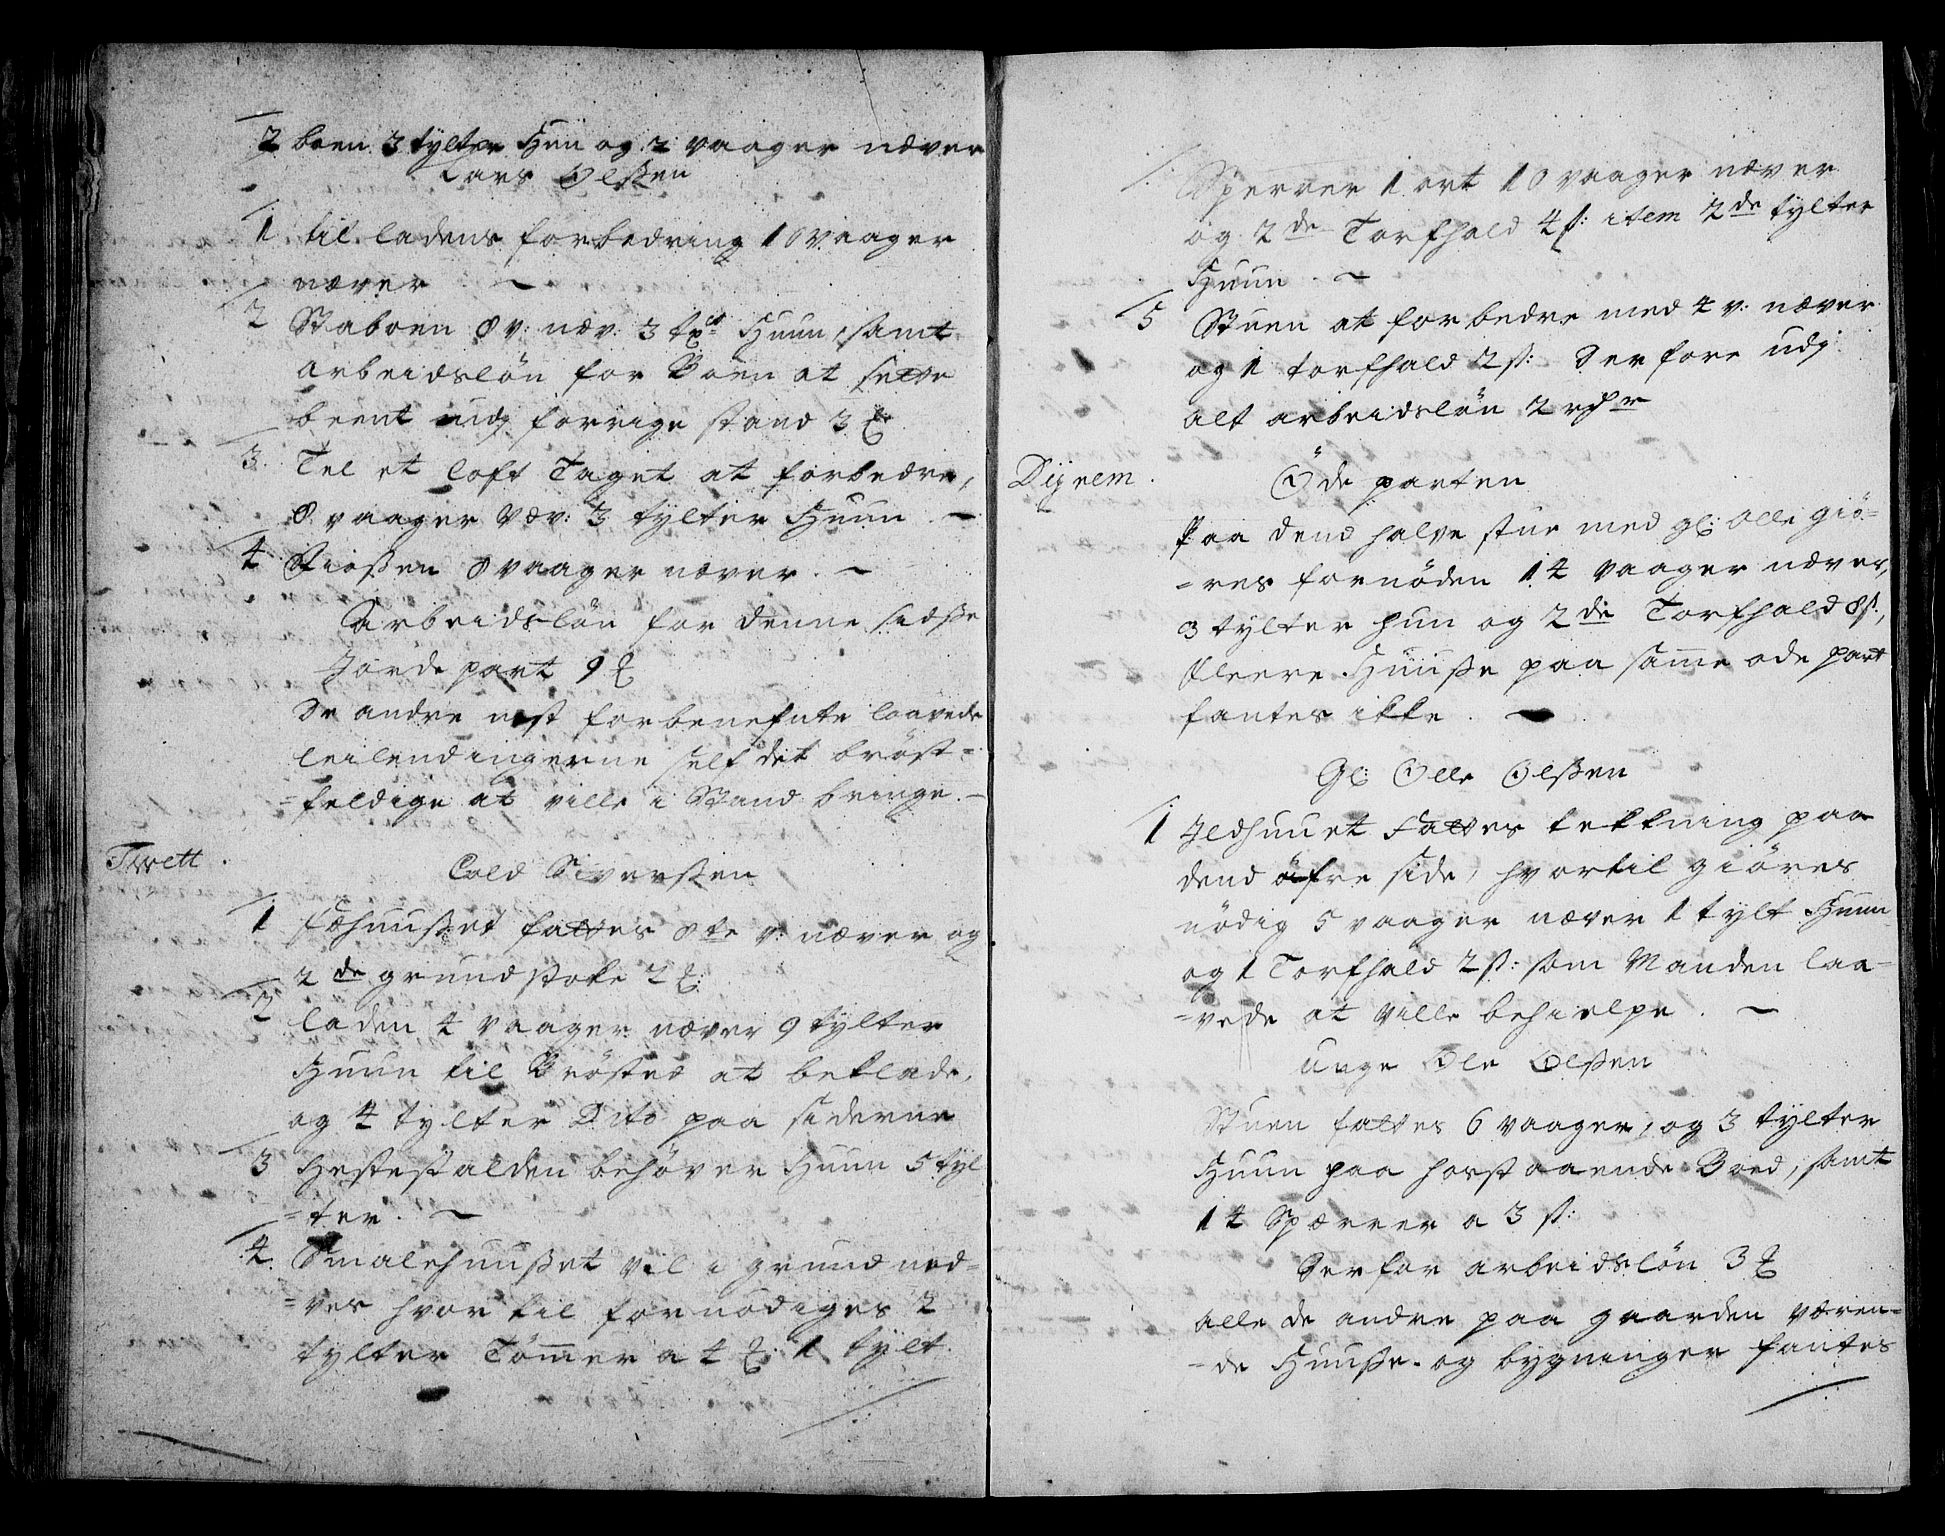 2 boen 3 tylter Hun og 2 vaager næver
Lars Olßen
1 til ladens forbedring 10 vaager
næver
2 Staboen 8 v: næv: 3 Huun, samt
arbeidslön for Boen at sette
beent udj forrige stand 3
3. Tel et loft Taget at forbedre,
8 vaager Næv: 3 tylter Huun
4 Fioßen 8 vaager næver.
Arbeidslön for denne sidste
Jorde part 9
De andre nest forbenefnte laavede
leilendingerne self det bröst-
=feldige at ville i Stand bringe.
Twett.
Cold Siverßen
1 Fæhuußet fattes 8te v: næver og
2de grundstoke 2
2 laden 4 vaager næver 9 tylter
Huun til Bröstet at beklæde,
og 4 tylter Dito paa siderne
3 Hestestalden behöver Huun 5 tyl
=ter.
4. Smalehuußet vil i grund ned=
=ves hvor til fornödiges 2
tylter Tömer a 4 1 tylt.
Sperrer 1 ort 10 vaager næver
og 2de Torfhald 4 ß: item 2de tylter
Huun.
5 Stuen at forbedre med 4 v: næver
og 1 torfhald 2 ß: Derfore udj
alt arbeidslön 2 rdr
Dijrem.
Öde parten
Paa dend halve stue med gl: Olle giö=
=res fornöden 14 vaager næver,
3 tylter hun og 2de Torfhald 8 ß,
fleere Huuße paa same öde part
fantes ikke.
Gl: Olle Olßen
1 Jldhuuet fattes tekkning paa
dend öfre side, hvortil giöres
nödig 5 vaager næver 1 tylt Huun
og 1 Torfhald 2 ß: som Manden laa=
=vede at ville behielpe.
unge Ole Olßen
Stuen fattes 6 vaager, og 3 tylter
Huun paa hosstaaende Boed, samt
14 Spærrer a 3 ß:
Derfor arbeidslön 3
alle de andre paa gaarden væren=
=de Huuße og bygninger fantes